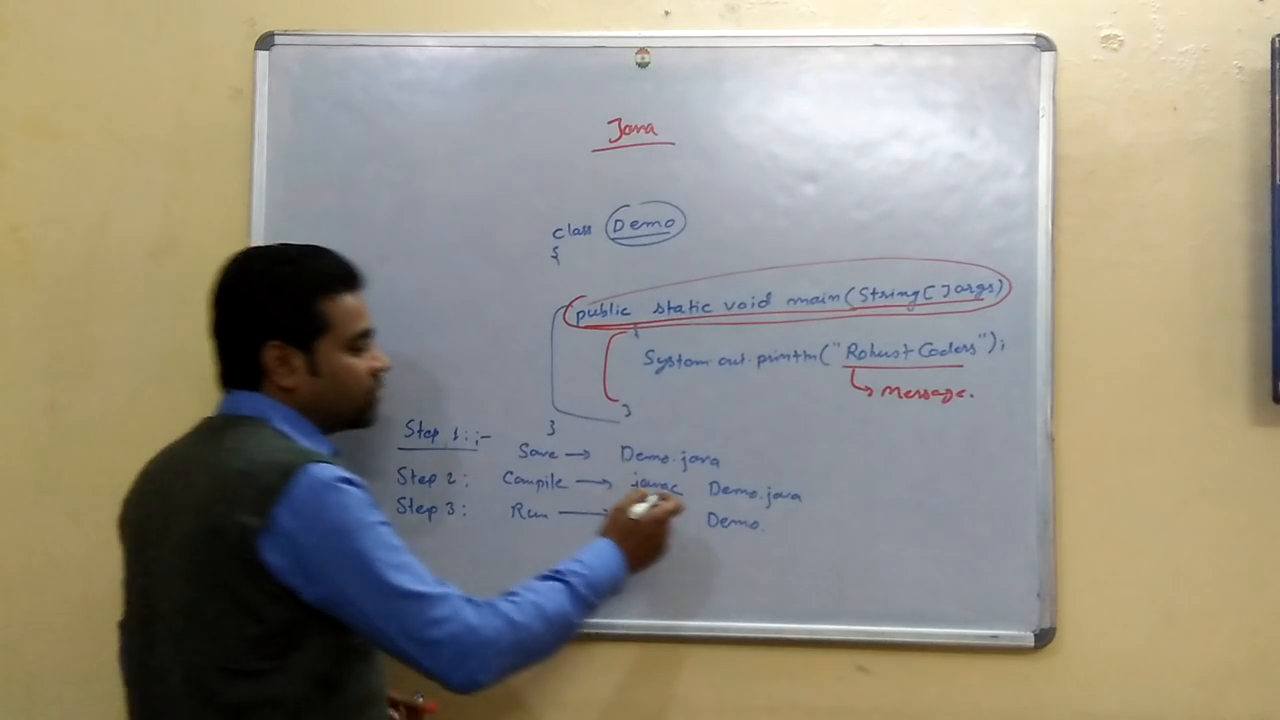 Java
class Demo
{
public static void main(String[]args)
{
System.out.println("Robust Coders");
Message.
}
}
Step 1:;-
Save → Demo.java
Step 2: Compile → javac Demo.java
Step 3: Run → Demo.